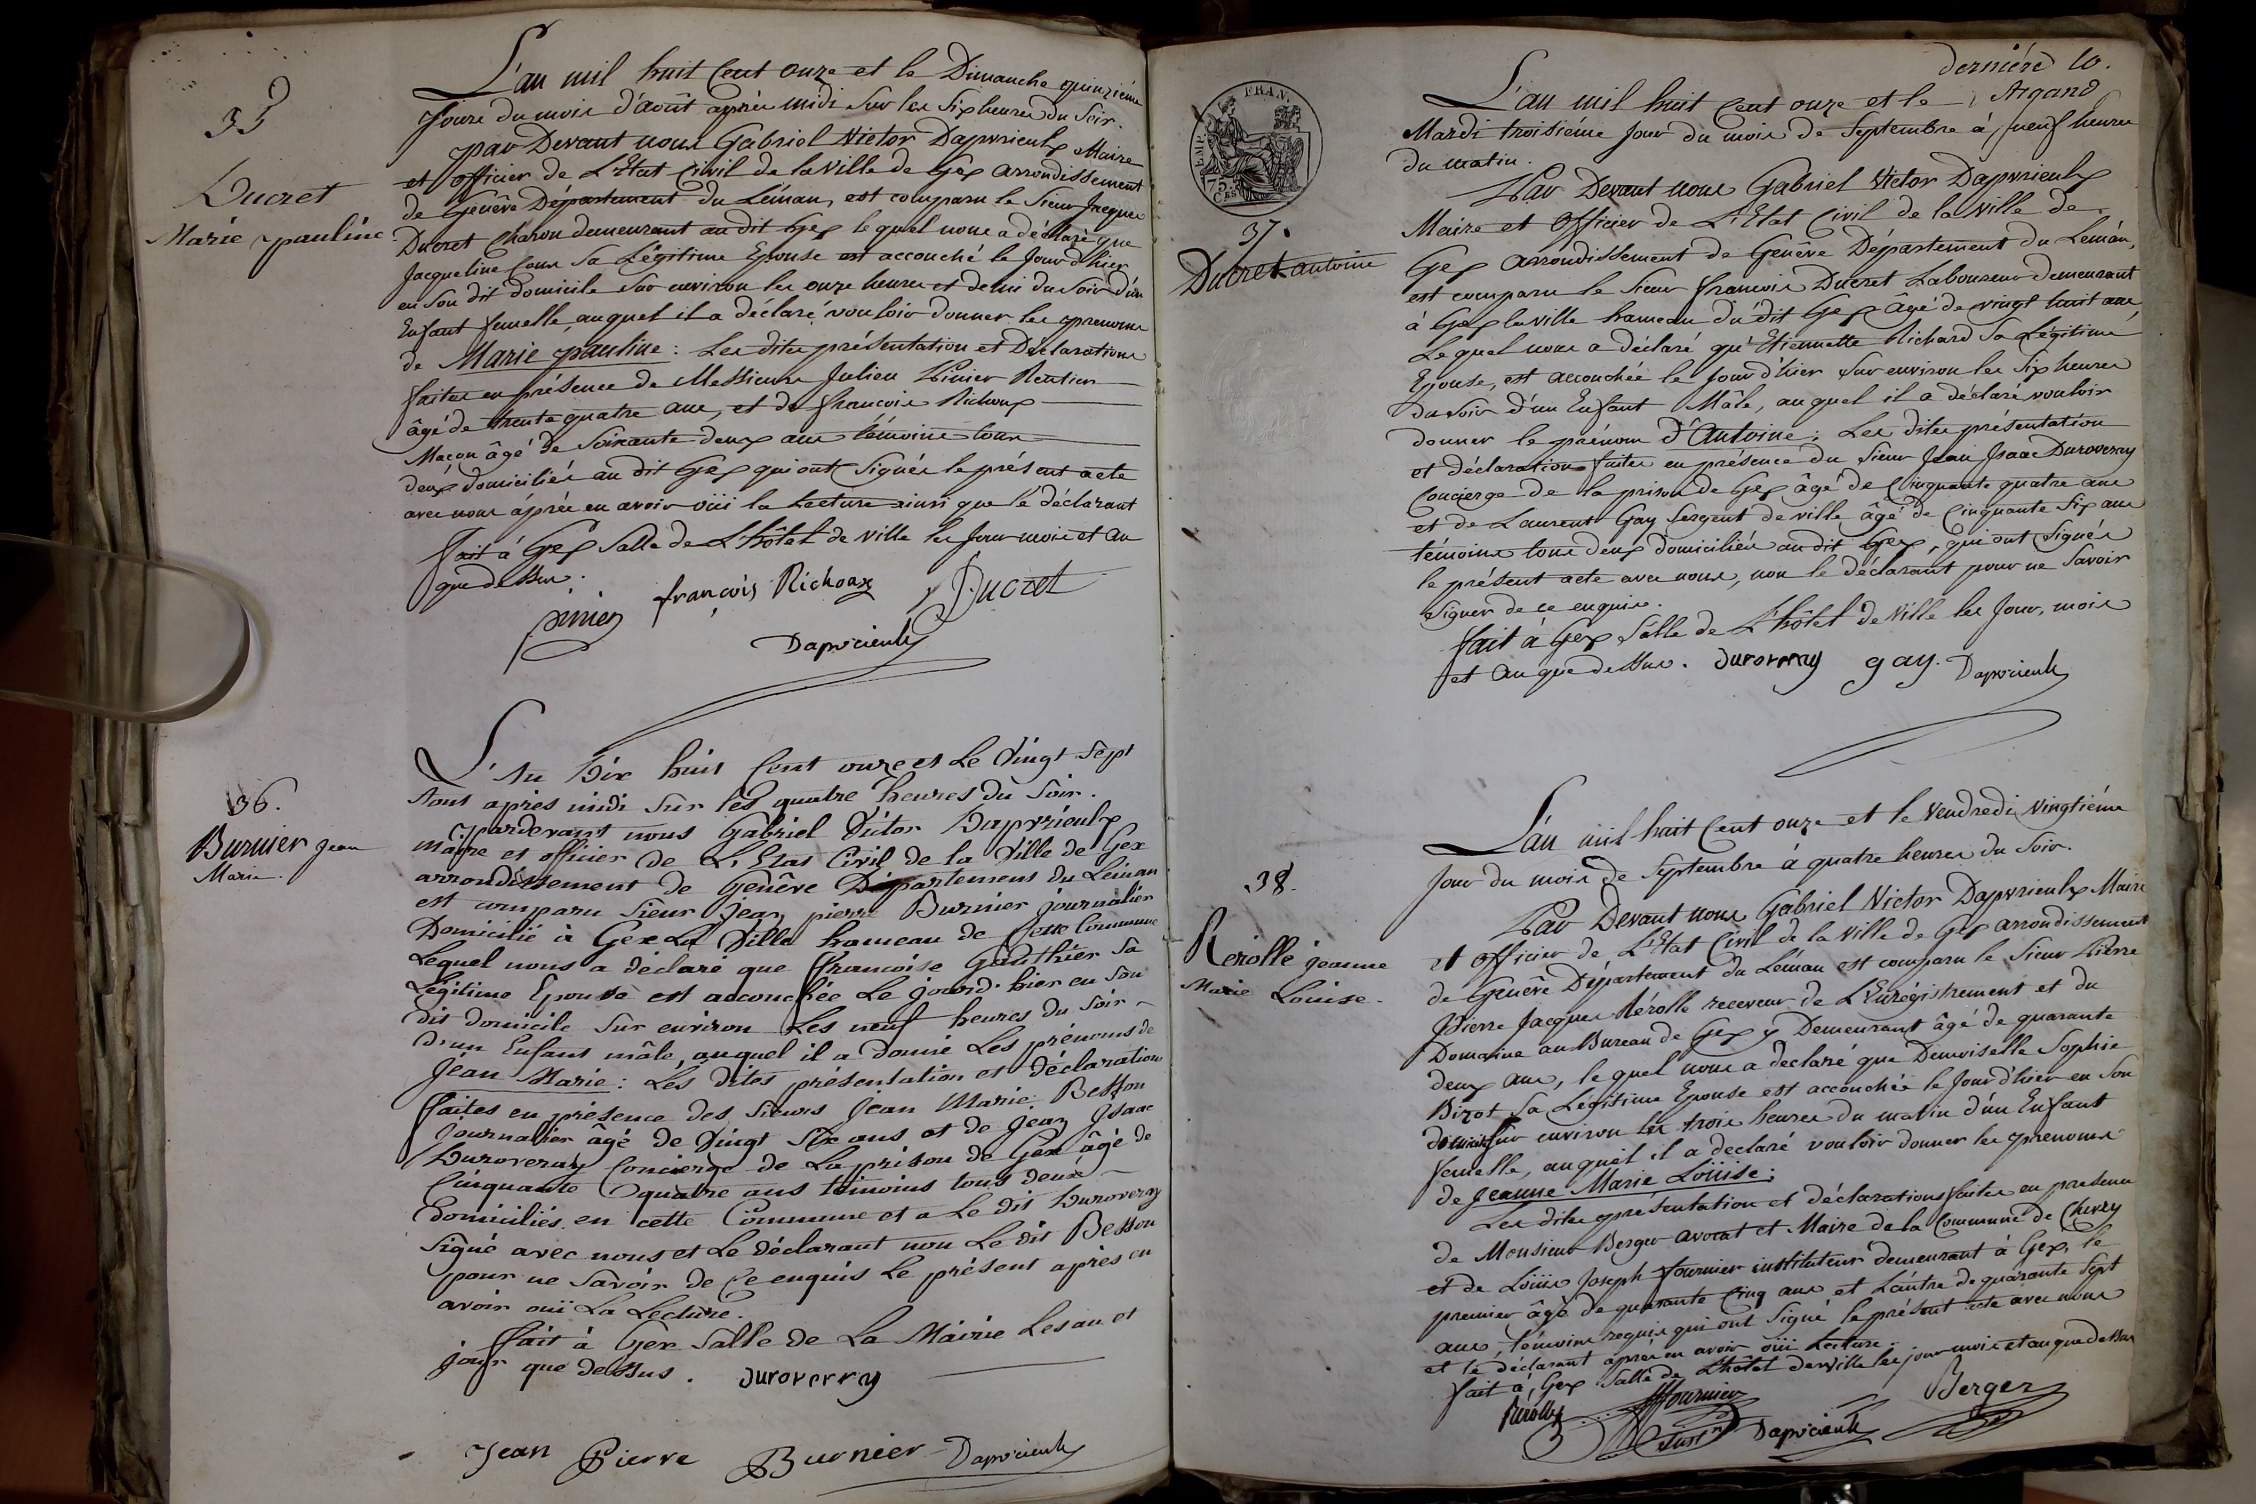 35
Ducret
Marie pauline
L'an mil huit Cent onze et le Dimanche quinzième
Jour du mois d'août après midi Sur les Six heures du Soir.
par Devant nous Gabriel Victor Daprvieulx Maire
et officier de L'Etat Civil de la Ville de Gex arrondissement
de Genêve Département du Léman, est comparu le Sieur Jacques
Ducret Charon demeurant au dit Gex lequel nous a déclaré que
Jacqueline Sa Légitime Epouse est accouché le Jour d'hier
en Son dit domicile Sur environ les onze heures et demi du Soir d'un
Enfant femelle, auquel il a déclaré vouloir donner les prenoms
de Marie pauline : Les dites présentation et Déclarations
faites en présence de Messieurs Julien Pinier Rentier
âgé de trente quatre ans, et de françois Richoux
Maçon âgé de Soixante deux ans témoins tous
deux domiciliés au dit Gex qui ont Signés le présent acte
avec nous après en avoir oüi la Lecture ainsi que le déclarant
fait à Gex Salle de L'hôtel de Ville les Jour mois et an
que dessus.
pinier françois Richoux Ducret
Daprvieulx
36.
Burnier Jean
Marie.
L'An Dix huit Cent onze et Le Vingt Sept
Aout après midi Sur les quatre heures du Soir.
pardevant nous Gabriel Victor Daprvieulx
Maire et officier de L'Etat Civil de la Ville de Gex
arrondissement de Genêve Département du Leman
est comparu Sieur Jean pierre Burnier journalier
Domicilié à Gex La Ville hameau de Cette Commune
Lequel nous a déclaré que françoise Gauthier Sa
Légitime Epouse est accouchée Le jourd'hier en Son
dit domicile Sur environ Les neuf heures du Soir
d'un Enfant mâle, auquel il a donné Les prénoms de
Jean Marie : Les dites présentation et déclaration
faites en présence des Sieurs Jean Marie Besson
Journalier âgé de Vingt Six ans et de Jean Isaac
Duroveray Concierge de La prison de Gex âgé de
Cinquante quatre ans témoins tous deux
Domiciliés en cette Commune et a Le dit Duroveray
Signé avec nous et Le déclarant non Le dit Besson
pour ne Savoir de Ce enquis Le présent après en
avoir ouï La Lecture.
fait à Gex Salle de La Mairie Les an et
jour que dessus. duroverray
Jean Pierre Burnier Daprvieulx
dernière 10.
Argand
FRAN.
EMP.
75.
37.
Ducret antoine
L'an mil huit Cent onze et le
Mardi troisième Jour du mois de Septembre à neuf heures
du matin.
Par Devant nous Gabriel Victor Daprvieulx
Maire et Officier de L'Etat Civil de la Ville de
Gex arrondissement de Genêve Département du Leman,
est comparu le Sieur françois Ducret Laboureur demeurant
à Gex la Ville hameau du dit Gex âgé de vingt huit ans,
Lequel nous a déclaré qu'Etiennette Richard Sa Légitime
Epouse, est accouchée le Jour d'hier Sur environ les Six heures
du Soir d'un Enfant Mâle, auquel il a déclaré vouloir
donner le prénom d'Antoine : Les dites présentation
et déclaration faites en présence du Sieur Jean Isaac Duroveray
Concierge de la prison de Gex âgé de Cinquante quatre ans
et de Laurent Gay Sergent de ville âgé de Cinquante Six ans
témoins tous deux domiciliés au dit Gex, qui ont Signés
le présent acte avec nous, non le déclarant pour ne Savoir
Signer de ce enquis.
fait à Gex Salle de L'hôtel de Ville les Jour, mois
et an que dessus. duroverray gay. Daprvieulx
38.
Rerolle jeanne
Marie Louise.
L'an mil huit Cent onze et le Vendredi Vingtième
Jour du mois de Septembre à quatre heures du Soir.
Par Devant nous Gabriel Victor Daprvieulx Maire
et Officier de L'Etat Civil de la Ville de Gex arrondissement
de Genêve Département du Léman est comparu le Sieur Pierre
Pierre Jacques Rérolle receveur de L'Enrégistrement et du
Domaine au Bureau de Gex y Demeurant âgé de quarante
deux ans, lequel nous a declaré que Demoiselle Sophie
Bizot Sa Légitime Epouse est accouchée le Jour d'hier en Son
domicile Sur environ les trois heures du matin d'un Enfant
femelle, auquel il a declaré vouloir donner les prenoms
de Jeanne Marie Loüise :
Les dites présentation et déclarations faites en presence
de Monsieur Berger avocat et Maire de la Commune de Chevry
et de Loüis Joseph fournier instituteur demeurant à Gex, le
premier âgé de quarante Cinq ans et L'autre de quarante Sept
ans, témoins requis qui ont Signé le présent acte avec nous
et le déclarant après en avoir oüi Lecture.
fait à Gex Salle de L'hôtel de Ville les jour mois et an que dessus
Rérolle fournier Berger
Daprvieulx